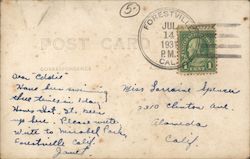 5
FORESTVILLE
JUL
14
193
P.M.
CAL
POST CARD
CORRESPONDENCE
1
Dear "Eddie"
Have been swim
three times in 1 day.
up here. Please write
write to Mirabel Park,
Forestville Calif.
Janet
Miss Lorraine Spencer
2210 Clinton Ave.
Alameda
Calif.